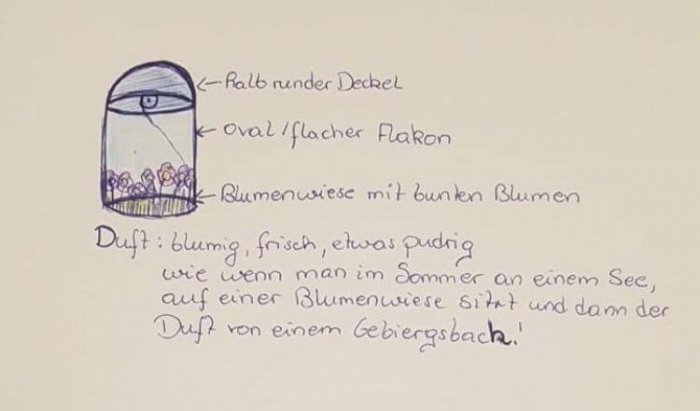 Halb runder Deckel
Oval/flacher Flakon
Blumenwiese mit bunten Blumen
Duft: blumig, frisch, etwas pudrig
wie wenn man im Sommer an einem See,
auf einer Blumenwiese sitzt und dann der
Duft von einem Gebiergsbach!